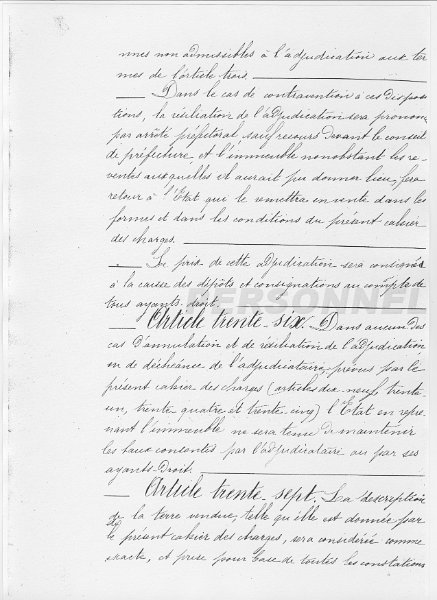 nnes non admissibles à l'adjudication aux ter
mes de l'article trois.
Dans le cas de contravention à ces disposi
tions, la résiliation de l'adjudication sera prononcée
par arrêté préfectoral sauf recours devant le conseil
de préfecture, et l'immeuble nonobstant les re-
ventes auxquelles il aurait pu donner lieu, fera
retour à l'Etat qui le remettra en vente dans les
formes et dans les conditions du présent cahier
des charges.
Le prix de cette adjudication sera consigné
à la caisse des dépôts et consignations au compte de
tous ayants-droit.
PERSONNEL
Article trente-six. Dans aucun des
cas d'annulation et de résiliation de l'adjudication
ou de déchéance de l'adjudicataire prévus par le
présent cahier des charges (articles dix-neuf, trente
un, trente quatre et trente cinq) l'Etat en repre-
nant l'immeuble ne sera tenu de maintenir
les baux consentis par l'adjudicataire ou par ses
ayants-Droit.
Article trente-sept. La description
de la terre vendue, telle qu'elle est donnée par
le présent cahier des charges, sera considérée comme
exacte, et prise pour base de toutes les constations